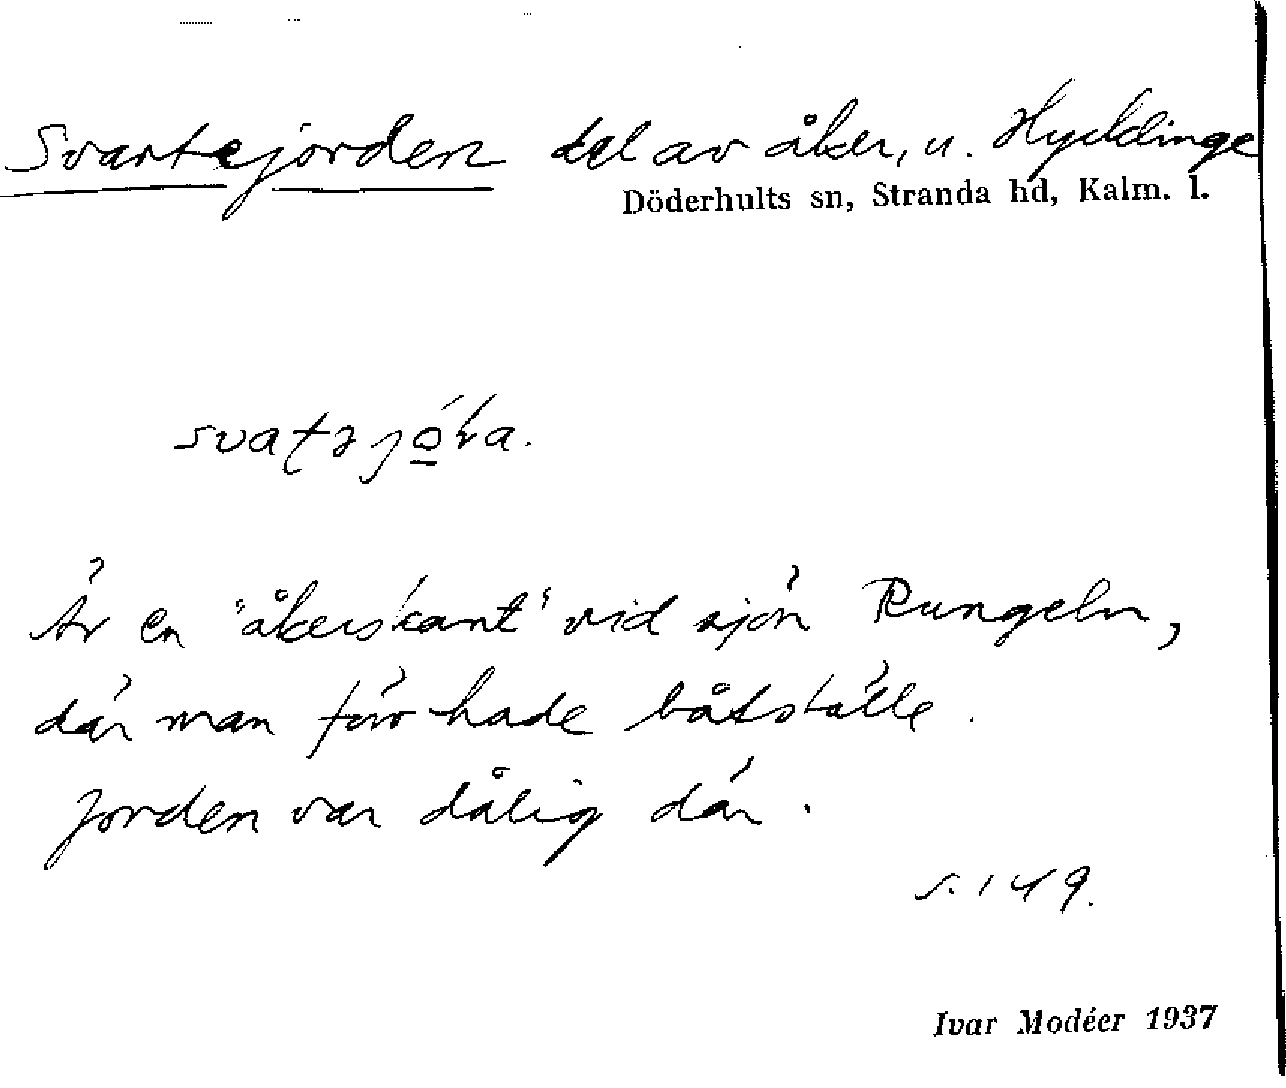 Svartejorden del av åker, u. Hycklinge
Döderhults sn, Stranda hd, Kalm. l.
Är en "åkerskant" vid sjön Rungeln,
där man förr hade båtställe.
Jorden var dålig där.
s. 149.
Ivar Modéer 1937